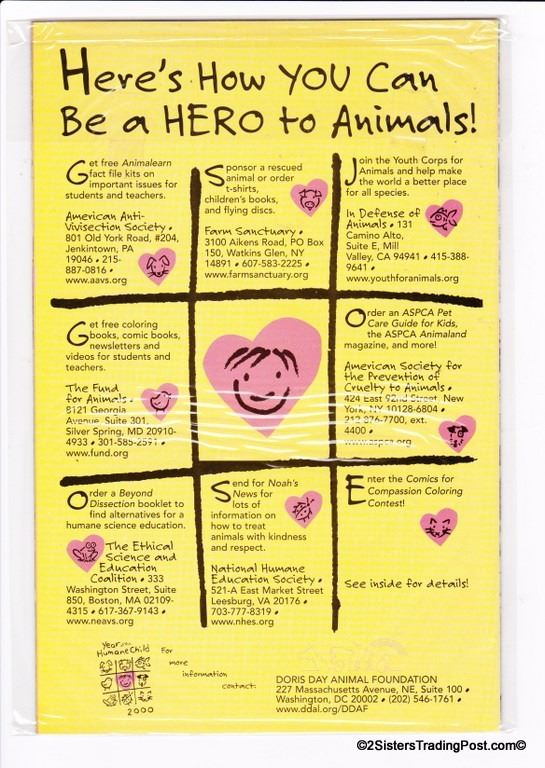 Here's How YOU Can
Be a HERO to Animals!
Get free Animalearn
fact file kits on
important issues for
students and teachers.
American Anti-
Vivisection Society •
801 Old York Road, #204,
Jenkintown, PA
19046 • 215-
887-0816 •
www.aavs.org
Sponsor a rescued
animal or order
t-shirts,
children's books,
and flying discs.
Farm Sanctuary •
3100 Aikens Road, PO Box
150, Watkins Glen, NY
14891 • 607-583-2225 •
www.farmsanctuary.org
Join the Youth Corps for
Animals and help make
the world a better place
for all species.
In Defense of
Animals • 131
Camino Alto,
Suite E, Mill
Valley, CA 94941 • 415-388-
9641 •
www.youthforanimals.org
Get free coloring
books, comic books,
newsletters and
videos for students and
teachers.
The Fund
for Animals •
8121 Georgia
Avenue, Suite 301,
Silver Spring, MD 20910-
4933 • 301-585-2591 •
www.fund.org
Order an ASPCA Pet
Care Guide for Kids,
the ASPCA Animaland
magazine, and more!
American Society for
the Prevention of
Cruelty to Animals •
424 East 92nd Street, New
York, NY 10128-6804 •
212-876-7700, ext.
4400 •
www.aspca.org
Order a Beyond
Dissection booklet to
find alternatives for a
humane science education.
The Ethical
Science and
Education
Coalition • 333
Washington Street, Suite
850, Boston, MA 02109-
4315 • 617-367-9143 •
www.neavs.org
Send for Noah's
News for
lots of
information on
how to treat
animals with kindness
and respect.
National Humane
Education Society •
521-A East Market Street
Leesburg, VA 20176 •
703-777-8319 •
www.nhes.org
Enter the Comics for
Compassion Coloring
Contest!
See inside for details!
Year of the
Humane Child
2000
For
more
information
contact:
DORIS DAY ANIMAL FOUNDATION
227 Massachusetts Avenue, NE, Suite 100 •
Washington, DC 20002 • (202) 546-1761 •
www.ddal.org/DDAF
©2SistersTradingPost.com©